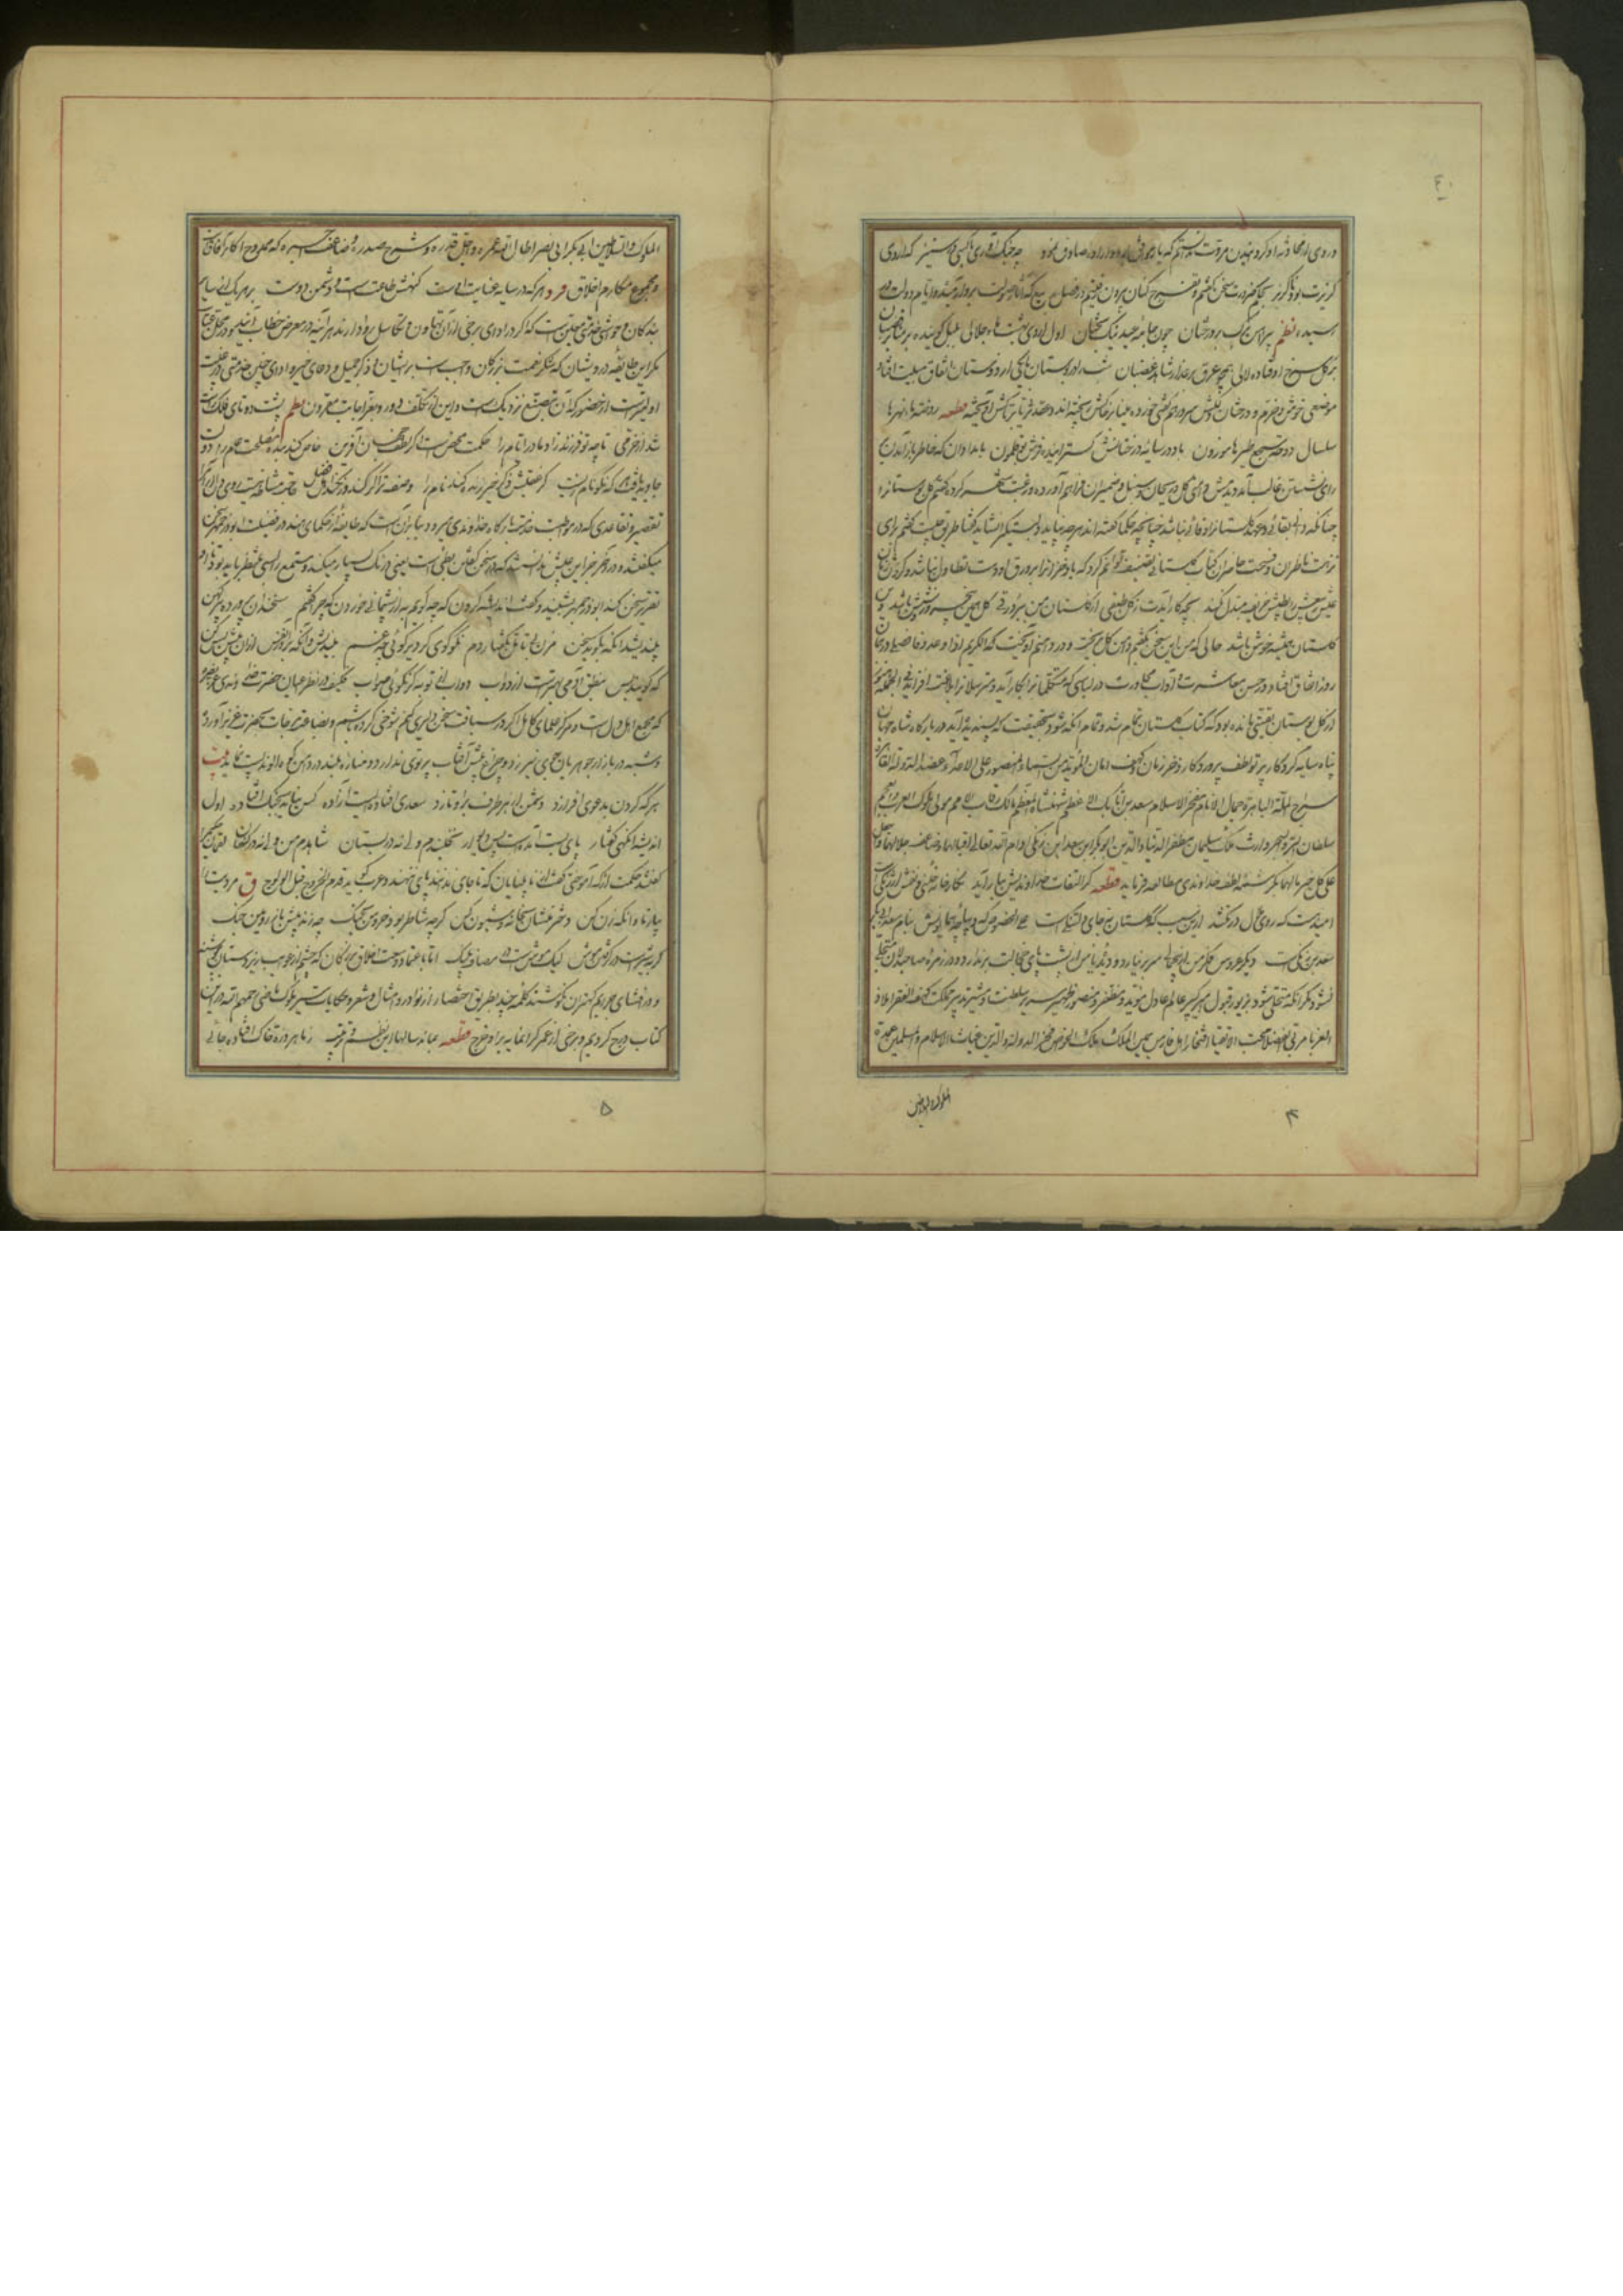 ۴۰
روی از محادثه او گردانیدن مروت ندانستم که یار موافق بود و ارادت صادق نمود چو جنگ آوری با کسی در ستیز که از وی
گزیرت بود یا گریز بحکم ضرورت سخن گفتم و تفرج کنان بیرون رفتیم در فصل ربیع که آثار صولت برد آرمیده و ایام دولت ورد
رسیده نظم پیراهن برگ بر درختان چون جامه عید نیک بختان اول اردی بهشت ماه جلالی بلبل گوینده بر منابر قضبان
بر گل سرخ از نم اوفتاده لالی همچو عرق بر عذار شاهد غضبان شب را در بوستان با یکی از دوستان اتفاق مبیت افتاد
موضعی خوش و خرم و درختان دلکش سر درهم گفتی خرده مینا بر خاکش ریخته اند و عقد ثریا از تاکش آویخته قطعه روضة ماء نهرها
سلسال دوحة سجع طیرها موزون باد در سایه درختانش گسترانیده فرش بوقلمون بامدادان که خاطر باز آمدن بر
رای نشستن غالب آمد دیدمش دامنی گل و ریحان و سنبل و ضمیران فراهم آورده و رغبت شهر کرده گفتم گل بستان را
چنانکه دانی بقائی و عهد گلستان را وفائی نباشد چنانچه حکما گفته اند هر چه نپاید دلبستگی را نشاید گفتا طریق چیست گفتم برای
نزهت ناظران و فسحت حاضران کتاب گلستانی تصنیف توانم کرد که باد خزان را بر ورق او دست تطاول نباشد و گردش زمان
عیش ربیعش را بطیش خریف مبدل نکند بچه کار آیدت ز گل طبقی از گلستان من ببر ورقی گل همین پنج روز و شش باشد وین
گلستان همیشه خوش باشد حالی که من این سخن بگفتم دامن گل بریخت و در دامنم آویخت که الکریم اذا وعد وفا فصلی دو همان
روز اتفاق افتاد در حسن معاشرت و آداب محاورت در لباسی که متکلمان را بکار آید و مترسلان را بلاغت افزاید فی الجمله هنوز
از گل بوستان بقیتی مانده بود که کتاب گلستان تمام شد و تمام آنکه شود بحقیقت که پسندیده آید در بارگاه شاه جهان
پناه سایه کردگار پرتو لطف پروردگار ذخر زمان کهف امان المؤید من السماء المنصور علی الاعداء عضد الدولة القاهره
سراج الملة الباهرة جمال الانام مفخر الاسلام سعد بن اتابک الاعظم شهنشاه المعظم مالک رقاب الامم مولی ملوک العرب و العجم
سلطان البر و البحر وارث ملک سلیمان مظفر الدنیا و الدین ابوبکر ابن سعد ابن زنگی ادام الله تعالی اقبالهما و ضاعف جلالهما و جعل
علی کل خیر مآلهما بکرشمه لطف خداوندی مطالعه فرماید قطعه گر التفات خداوندیش بیاراید نگارخانه چینی و نقش ارژنگی است
امید هست که روی ملال در نکشد ازین سبب که گلستان نه جای دلتنگی است علی الخصوص که دیباچه همایونش بنام سعد ابی بکر
سعد بن زنگی است دیگر عروس فکر من از بیجمالی سر بر نیارد و دیده یاس از پشت پای خجالت بر ندارد و در زمره صاحبدلان متجلی
نشود مگر آنکه متحلی شود بزیور قبول امیر کبیر عالم عادل مؤید و مظفر و منصور ظهیر سریر سلطنت و مشیر تدبیر مملکت کهف الفقرا ملاذ
الغربا مربی الفضلا محب الاتقیا افتخار اهل فارس یمین الملک ملک الخواص فخر الدولة و الدین غیاث الاسلام و المسلمین عمدة
الملوک والسلاطین
۴
الملوک و السلاطین ابی بکر ابی نصر اطال الله عمره و اجل قدره و شرح صدره و ضاعف اجره که ممدوح اکابر آفاقست
و مجموع مکارم اخلاق فرد هر که در سایه عنایت اوست گنهش طاعت است و دشمن دوست بر هر یک از سایر
بندگان و حواشی خدمتی معین است که اگر در ادای برخی از آن تهاون و تکاسل روا دارند هر آینه در معرض خطاب آیند و در محل عتاب
مگر این طایفه درویشان که شکر نعمت بزرگان واجبست بر ایشان و ذکر جمیل و دعای خیر و ادای چنین خدمتی در غیبت
اولیترست از حضور که آن بتصنع نزدیک است و این از تکلف دور و باجابت مقرون نظم پشت دوتای فلک راست
شد از خرمی تا چو تو فرزند زاد مادر ایام را حکمت محض است اگر لطف جهان آفرین خاص کند بنده مصلحت عام را دولت
جاوید یافت هر که نکو نام زیست کز عقبش ذکر خیر زنده کند نام را وصف ترا گر کنند ور نکنند اهل فضل حاجت مشاطه نیست روی دلارام را
تقصیر و تقاعدی که در مواظبت خدمت بارگاه خداوندی میرود بنا برآنست که طایفه از حکمای هند در فضیلت بوذرجمهر سخن
میگفتند و در آخر جز این عیبش ندانستند که در سخن گفتن بطی است یعنی درنگ بسیار میکند و مستمع را بسی منتظر باید بود تا او
تقریر سخن کند ابوذرجمهر بشنید و گفت اندیشه کردن که چه گویم به از پشیمانی خوردن که چرا گفتم سخندان پرورده پیر کهن
بیندیشد آنگه بگوید سخن مزن بی تامل بگفتار دم نکو گوی گر دیر گوئی چه غم بیندیش و آنگه برآور نفس ازان پیش بس کن
که گویند بس بنطق آدمی بهترست از دواب دواب از تو به گر نگوئی صواب فکیف در نظر اعیان حضرت خداوندی عز نصره
که مجمع اهل دل است و مرکز علمای کامل اگر در سیاقت سخن دلیری کنم شوخی کرده باشم و بضاعت مزجات بحضرت عزیز آورده
و شبه در بازار جوهریان جوی نیرزد و چراغ پیش آفتاب پرتوی ندارد و مناره بلند در دامن کوه الوند پست نماید بیت
هر که گردن بدعوی افرازد دشمن از هر طرف برو تازد سعدی افتاده ایست آزاده کس نیاید بجنگ افتاده اول
اندیشه آنگهی گفتار پای بست آمده است پس دیوار نخلبندم ولی نه در بستان شاهدم من ولی نه در کنعان لقمان حکیم را
گفتند حکمت از که آموختی گفت از نابینایان که تا جای ندانند پای ننهند و عرب گوید قدم الخروج قبل الولوج ق مردیت
بیازما و آنگه زن کن دختر منشان بخانه و شیون کن گرچه شاطر بود خروس بجنگ چه زند پیش باز رویین چنگ
گربه شیر است در گرفتن موش لیک موش است در مصاف پلنگ اما باعتماد وسعت اخلاق بزرگان که چشم از عوایب زیر دستان بپوشند
و در افشای جرایم کهتران نکوشند کلمه چند بطریق اختصار از نوادر و امثال و شعر و حکایات سیر ملوک ماضی رحمهم الله درین
کتاب درج کردیم و برخی از عمر گرانمایه برو خرج قطعه بماند سالها این نظم و ترتیب ز ما هر ذره خاک افتاده جائی
۵